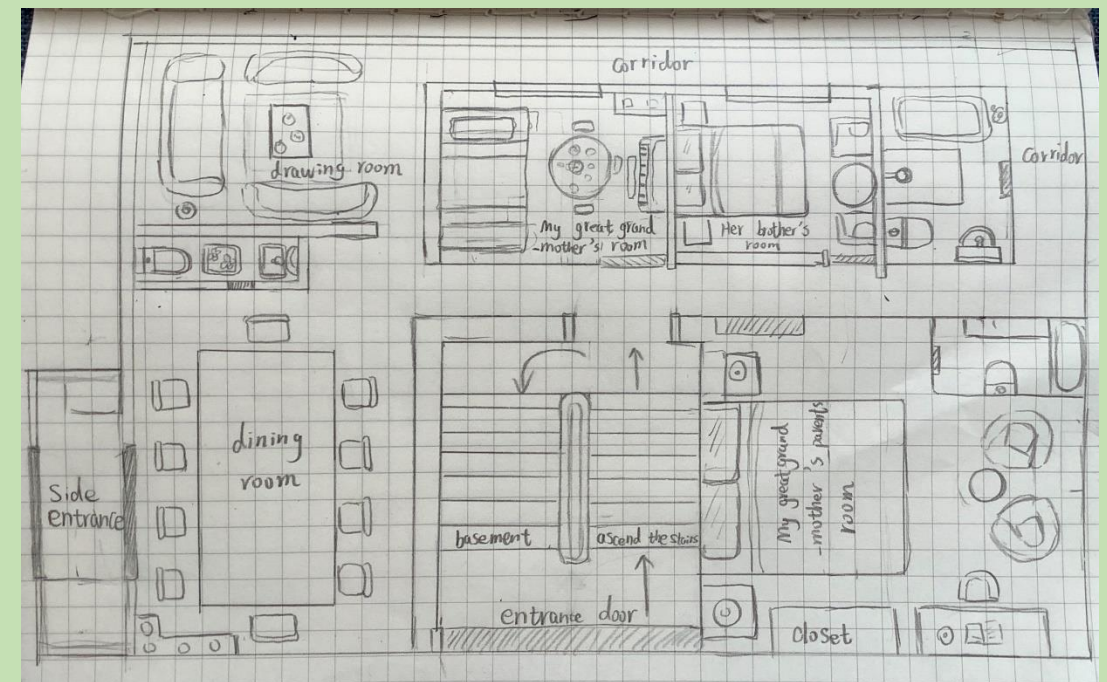 Corridor
drawing room
Corridor
My great grand
-mother's room
Her brother's
room
dining
room
Side
entrance
basement
ascend the stairs
My great grand
-mother's parents
room
entrance door
Closet